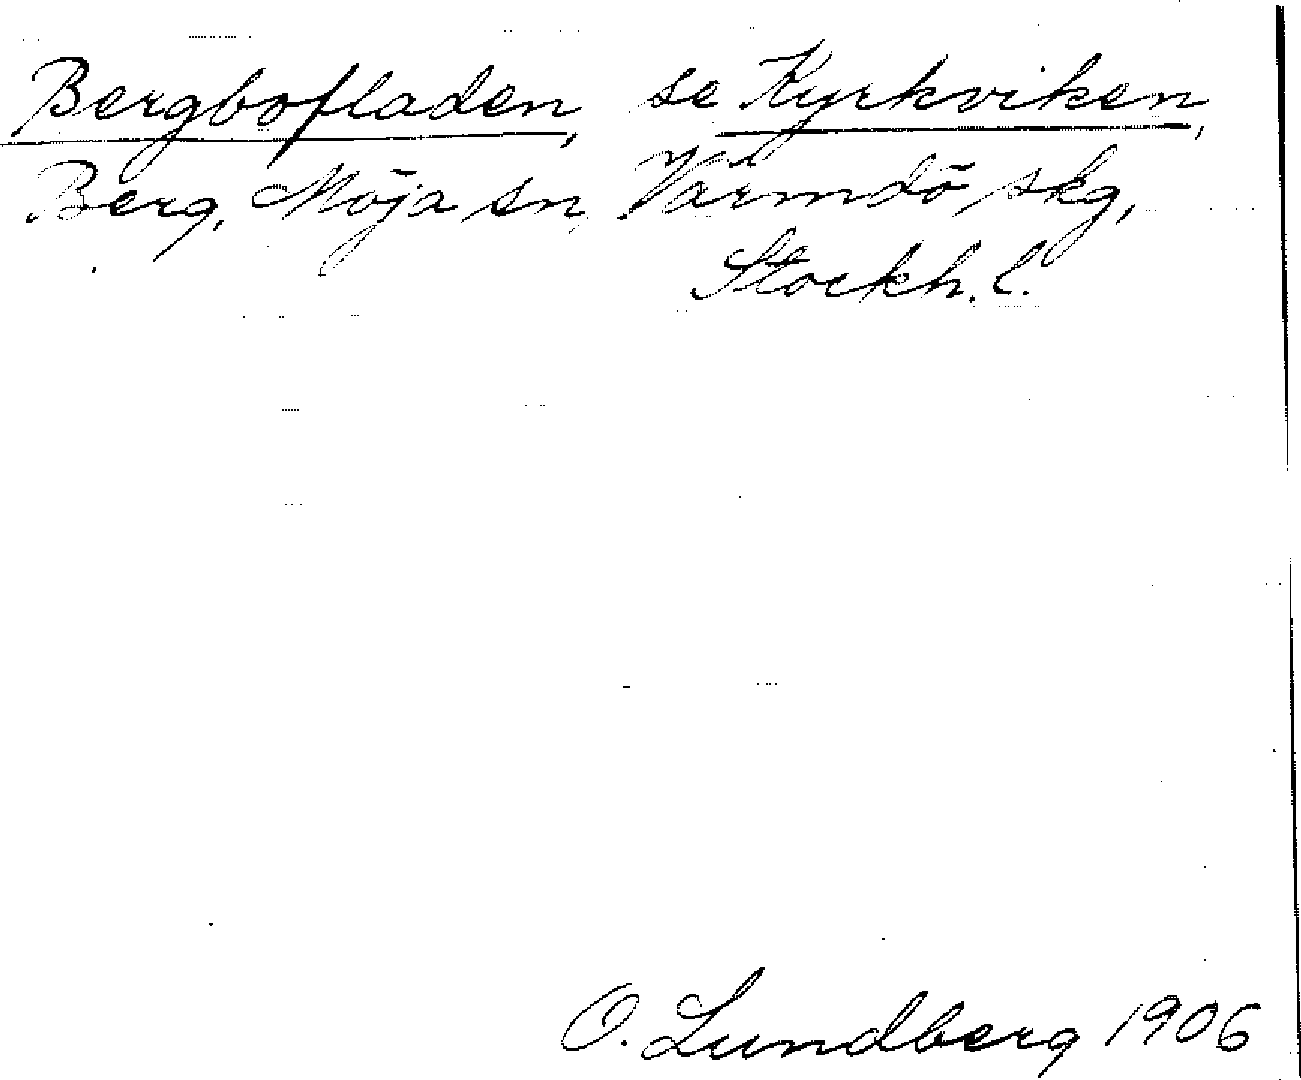 Bergbofladen, se Kyrkviken,
Berg, Möja sn, Värmdö skg,
Stockh. l.
O. Lundberg 1906